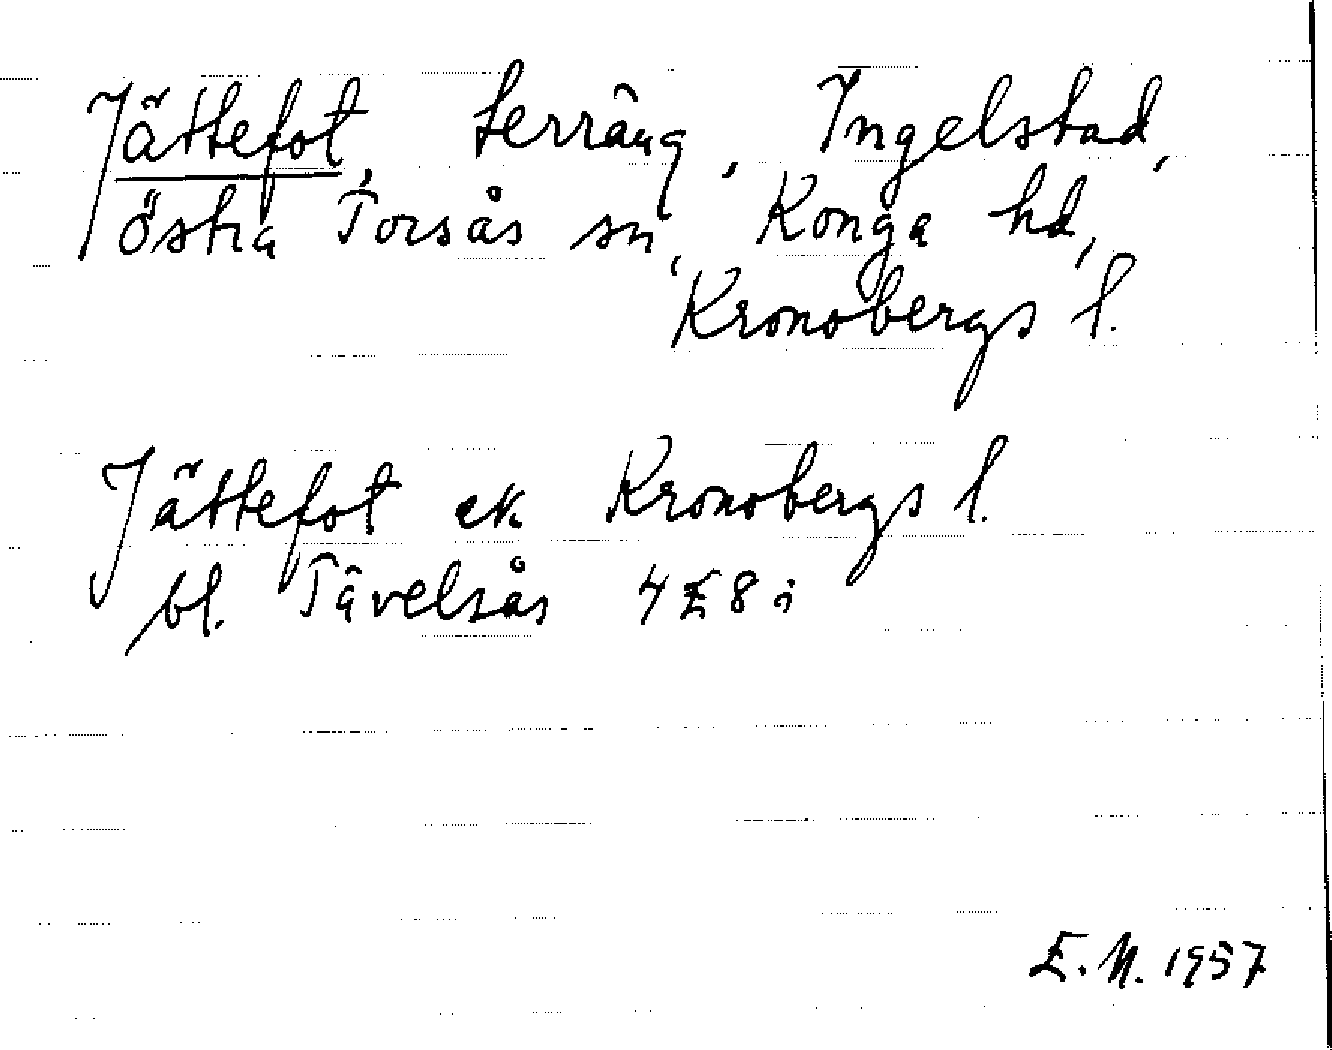 Jättefot, terräng, Ingelstad,
östra Torsås sn, Konga hd,
Kronobergs l.
Jättefot ek Kronobergs l.
bl. Tävelsås 4E8i
E.N. 1957